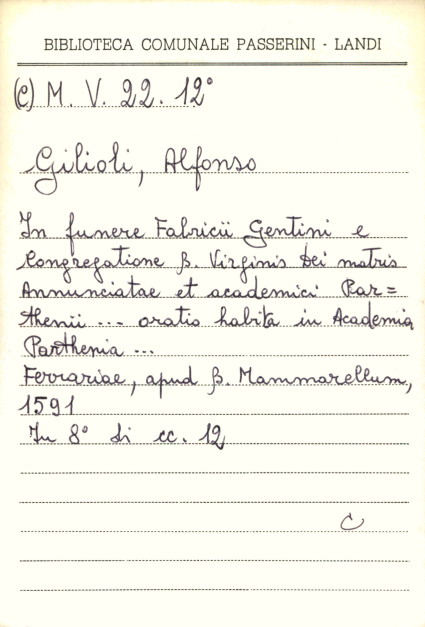 BIBLIOTECA COMUNALE PASSERINI - LANDI
(C) M. V. 22. 12°
Gilioli, Alfonso
In funere Fabricii Gentini e
Congregatione B. Virginis Dei matris
Annunciatae et academici Par=
thenii ... oratio habita in Academia
Parthenia ...
Ferrariae, apud B. Mammarellum,
1591
In 8° di cc. 12
C